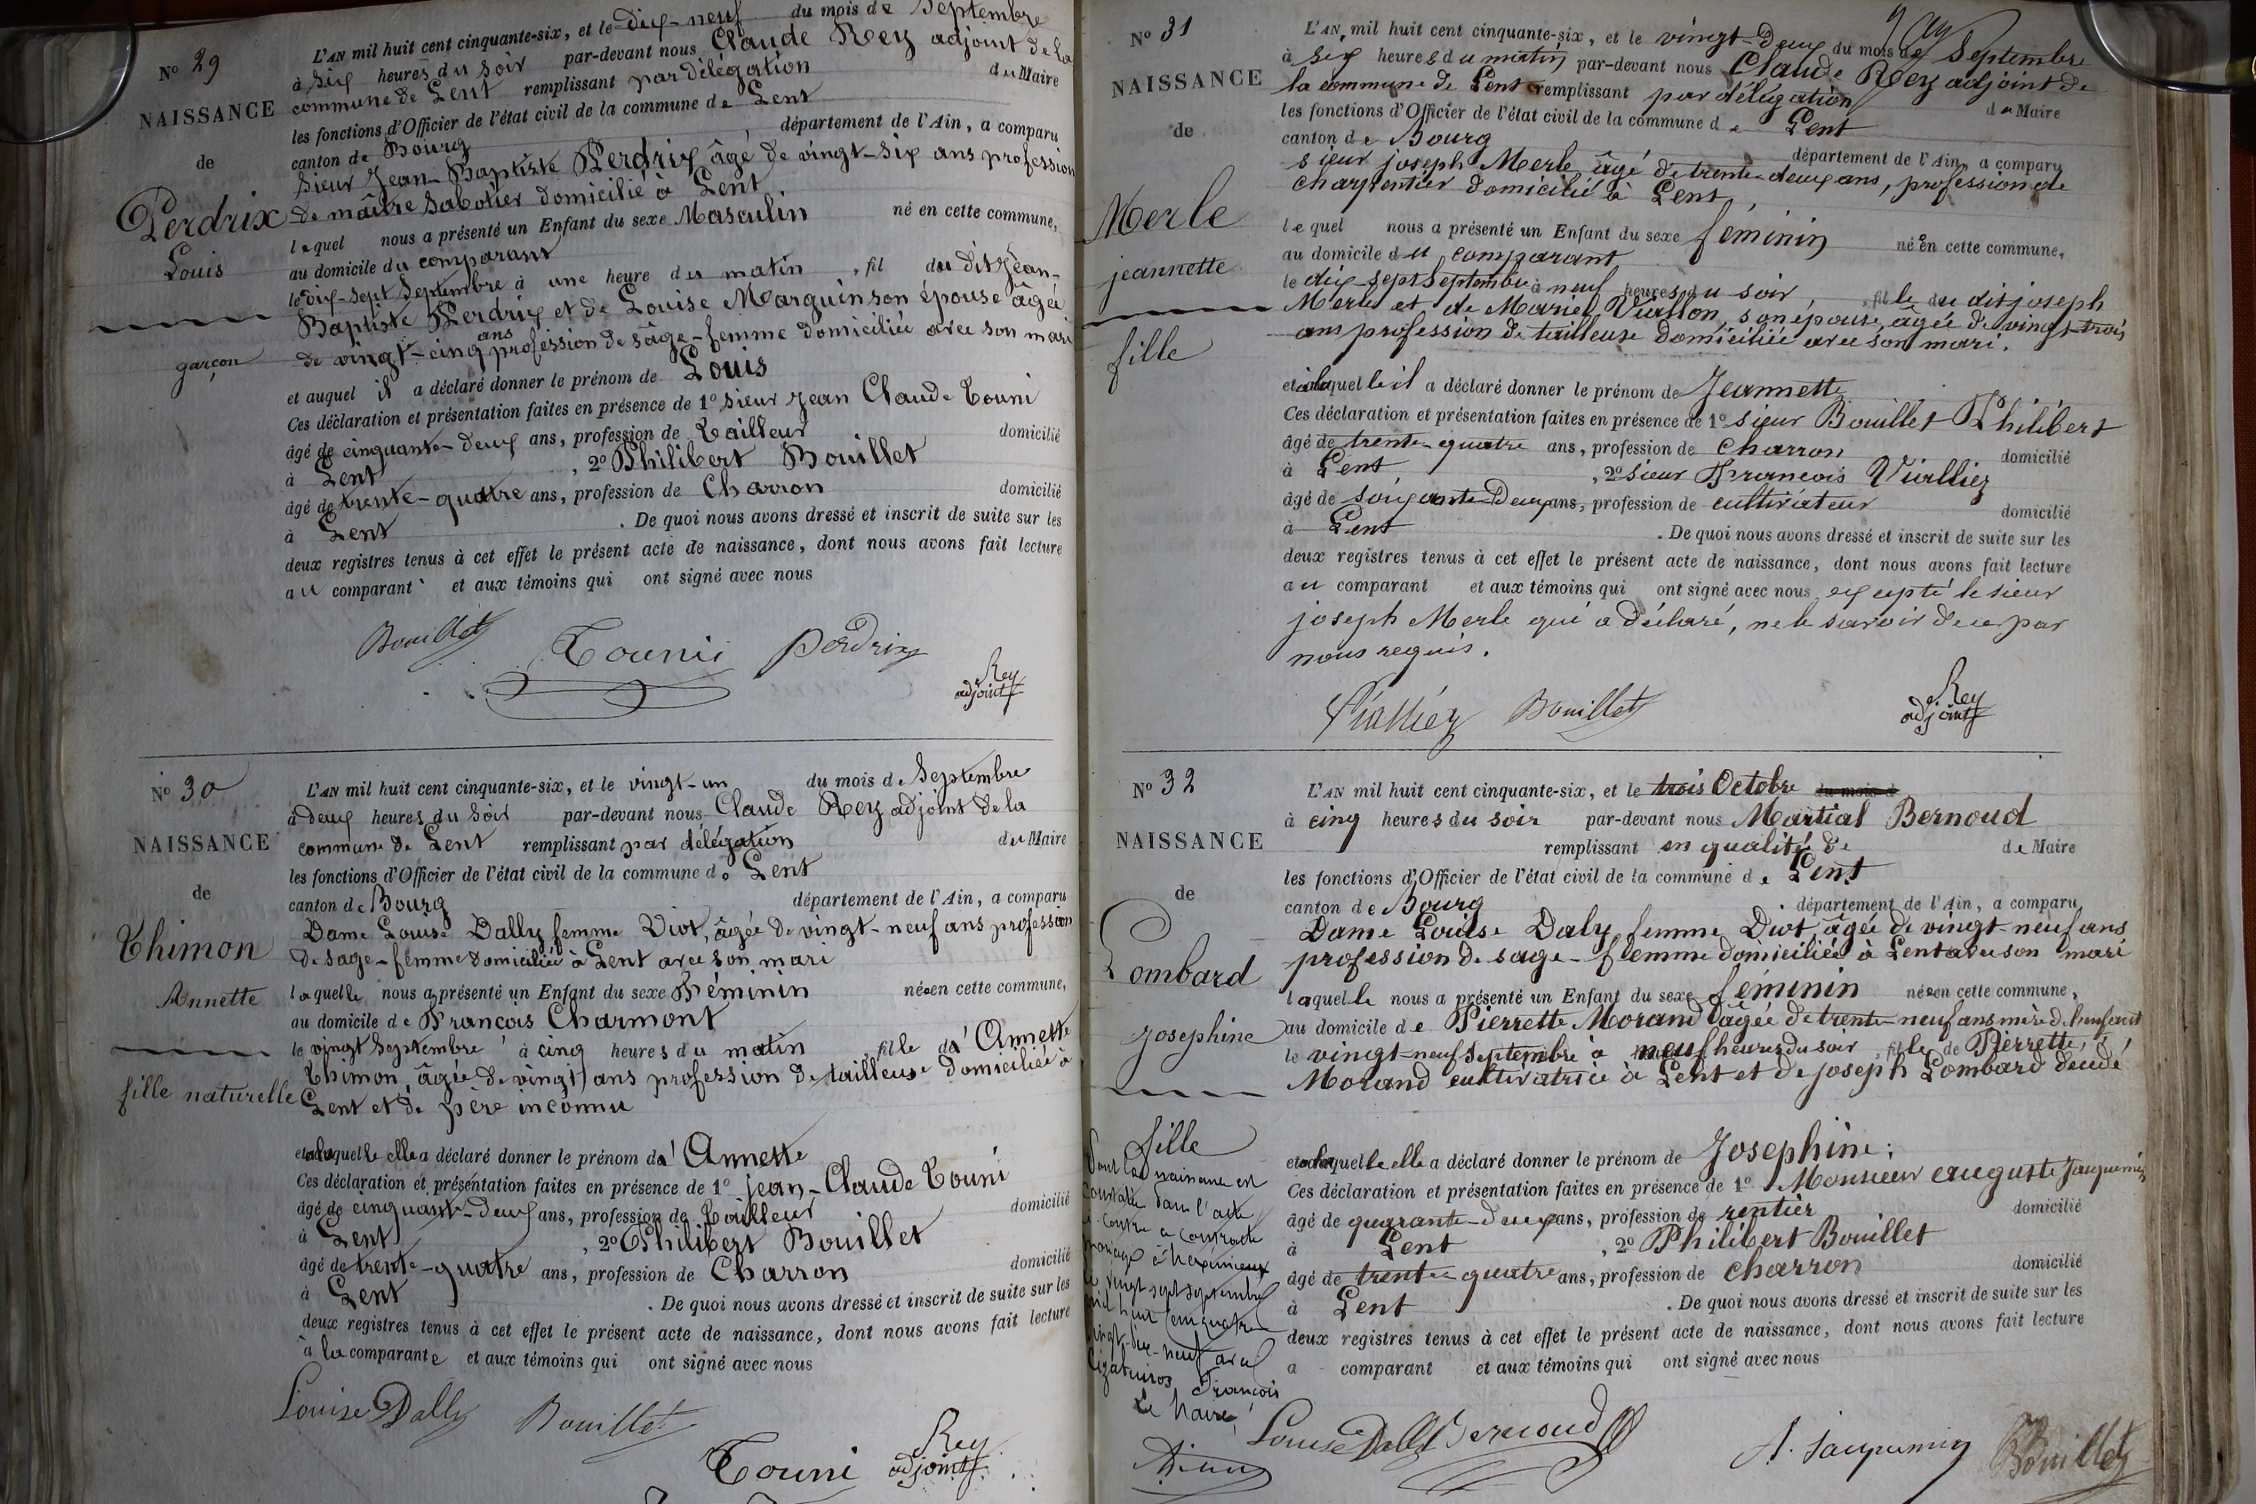 N° 29
NAISSANCE
de
Perdrix
Louis
garçon
L'AN mil huit cent cinquante-six, et le dix-neuf du mois de Septembre
à six heures du soir par-devant nous Claude Rey adjoint de la
commune de Lent remplissant par délégation du Maire
les fonctions d'Officier de l'état civil de la commune de Lent
canton de Bourg département de l'Ain, a comparu
Sieur Jean-Baptiste Perdrix âgé de vingt-six ans profession
de maître Sabotier domicilié à Lent
lequel nous a présenté un Enfant du sexe Masculin né en cette commune,
au domicile du comparant
le dix-sept Septembre à une heure du matin, fil du dit Jean-
Baptiste Perdrix et de Louise Marguin son épouse âgée
de vingt-cinq ans profession de sâge-femme domiciliée avec son mari
et auquel il a déclaré donner le prénom de Louis
Ces déclaration et présentation faites en présence de 1° sieur Jean Claude Touni
âgé de cinquante-deux ans, profession de Tailleur domicilié
à Lent, 2° Philibert Bouillet
âgé de trente-quatre ans, profession de Charron domicilié
à Lent. De quoi nous avons dressé et inscrit de suite sur les
deux registres tenus à cet effet le présent acte de naissance, dont nous avons fait lecture
au comparant et aux témoins qui ont signé avec nous
Bouillet Touni Perdrix Rey
adjoint
N° 30
NAISSANCE
de
Thimon
Annette
fille naturelle
L'AN mil huit cent cinquante-six, et le vingt-un du mois de Septembre
à deux heures du soir par-devant nous Claude Rey adjoint de la
commune de Lent remplissant par délégation du Maire
les fonctions d'Officier de l'état civil de la commune de Lent
canton de Bourg département de l'Ain, a comparu
Dame Louise Dally femme Diot, âgée de vingt-neuf ans profession
de sage-femme domiciliée à Lent avec son mari
laquelle nous a présenté un Enfant du sexe Féminin née en cette commune,
au domicile de François Charmont
le vingt Septembre à cinq heures du matin, fille d'Annette
Thimon, âgée de vingt ans profession de tailleuse domiciliée à
Lent et de père inconnu
et à laquelle elle a déclaré donner le prénom d'Annette
Ces déclaration et présentation faites en présence de 1° Jean-Claude Touni
âgé de cinquante-deux ans, profession de Tailleur domicilié
à Lent, 2° Philibert Bouillet
âgé de trente-quatre ans, profession de Charron domicilié
à Lent. De quoi nous avons dressé et inscrit de suite sur les
deux registres tenus à cet effet le présent acte de naissance, dont nous avons fait lecture
à la comparante et aux témoins qui ont signé avec nous
Louise Dally Bouillet Touni Rey
adjoint
N° 31
NAISSANCE
de
Merle
jeannette
fille
L'AN mil huit cent cinquante-six, et le vingt-deux du mois de Septembre
à six heures du matin par-devant nous Claude Rey adjoint de
la commune de Lent remplissant par délégation du Maire
les fonctions d'Officier de l'état civil de la commune de Lent
canton de Bourg département de l'Ain, a comparu
sieur joseph Merle âgé de trente-deux ans, profession de
charpentier domicilié à Lent,
lequel nous a présenté un Enfant du sexe féminin née en cette commune,
au domicile du comparant
le dix sept Septembre à neuf heures du soir, fille du dit joseph
Merle et de Marie Viallon, son épouse, âgée de vingt-trois
ans profession de tailleuse domiciliée avec son mari.
et à laquelle il a déclaré donner le prénom de Jeannette
Ces déclaration et présentation faites en présence de 1° sieur Bouillet Philibert
âgé de trente-quatre ans, profession de charron domicilié
à Lent, 2° sieur François Viallier
âgé de soixante-deux ans, profession de cultivateur domicilié
à Lent. De quoi nous avons dressé et inscrit de suite sur les
deux registres tenus à cet effet le présent acte de naissance, dont nous avons fait lecture
au comparant et aux témoins qui ont signé avec nous excepté le sieur
joseph Merle qui a déclaré, ne le savoir de ce par
nous requis.
Vialliéz Bouillet Rey
adjoint
N° 32
NAISSANCE
de
Lombard
Josephine
fille
Dont la naissance est
constatée dans l'acte
ci-contre a contracté
mariage à Meximieux
le vingt sept septembre
mil huit cent quatre
vingt-dix-neuf avec
François
Le Maire,
L'AN mil huit cent cinquante-six, et le trois Octobre du mois d
à cinq heures du soir par-devant nous Martial Bernoud
remplissant en qualité de de Maire
les fonctions d'Officier de l'état civil de la commune de Lent
canton de Bourg département de l'Ain, a comparu
Dame Louise Daly, femme Diot, âgée de vingt-neuf ans
profession de sage-femme domiciliée à Lent avec son mari
laquelle nous a présenté un Enfant du sexe féminin née en cette commune,
au domicile de Pierrette Morand âgée de trente-neuf ans mère de l'enfant
le vingt-neuf septembre à neuf heures du soir, fille de Pierrette
Morand cultivatrice à Lent et de joseph Lombard décédé
et à laquelle elle a déclaré donner le prénom de Josephine;
Ces déclaration et présentation faites en présence de 1° Monsieur auguste Jacquemin
âgé de quarante-deux ans, profession de rentier domicilié
à Lent, 2° Philibert Bouillet
âgé de trente-quatre ans, profession de charron domicilié
à Lent. De quoi nous avons dressé et inscrit de suite sur les
deux registres tenus à cet effet le présent acte de naissance, dont nous avons fait lecture
a comparant et aux témoins qui ont signé avec nous
Louise Dally Bernoud A. Jacquemin Bouillet